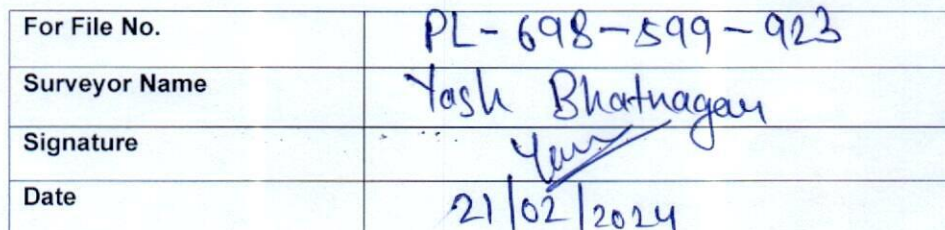 For File No. PL-698-599-923
Surveyor Name Yash Bhatnagar
Signature Yash
Date 21/02/2024